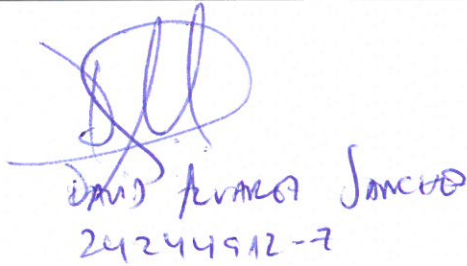 DAVID ALVAREZ SANCHEZ
24244912-7